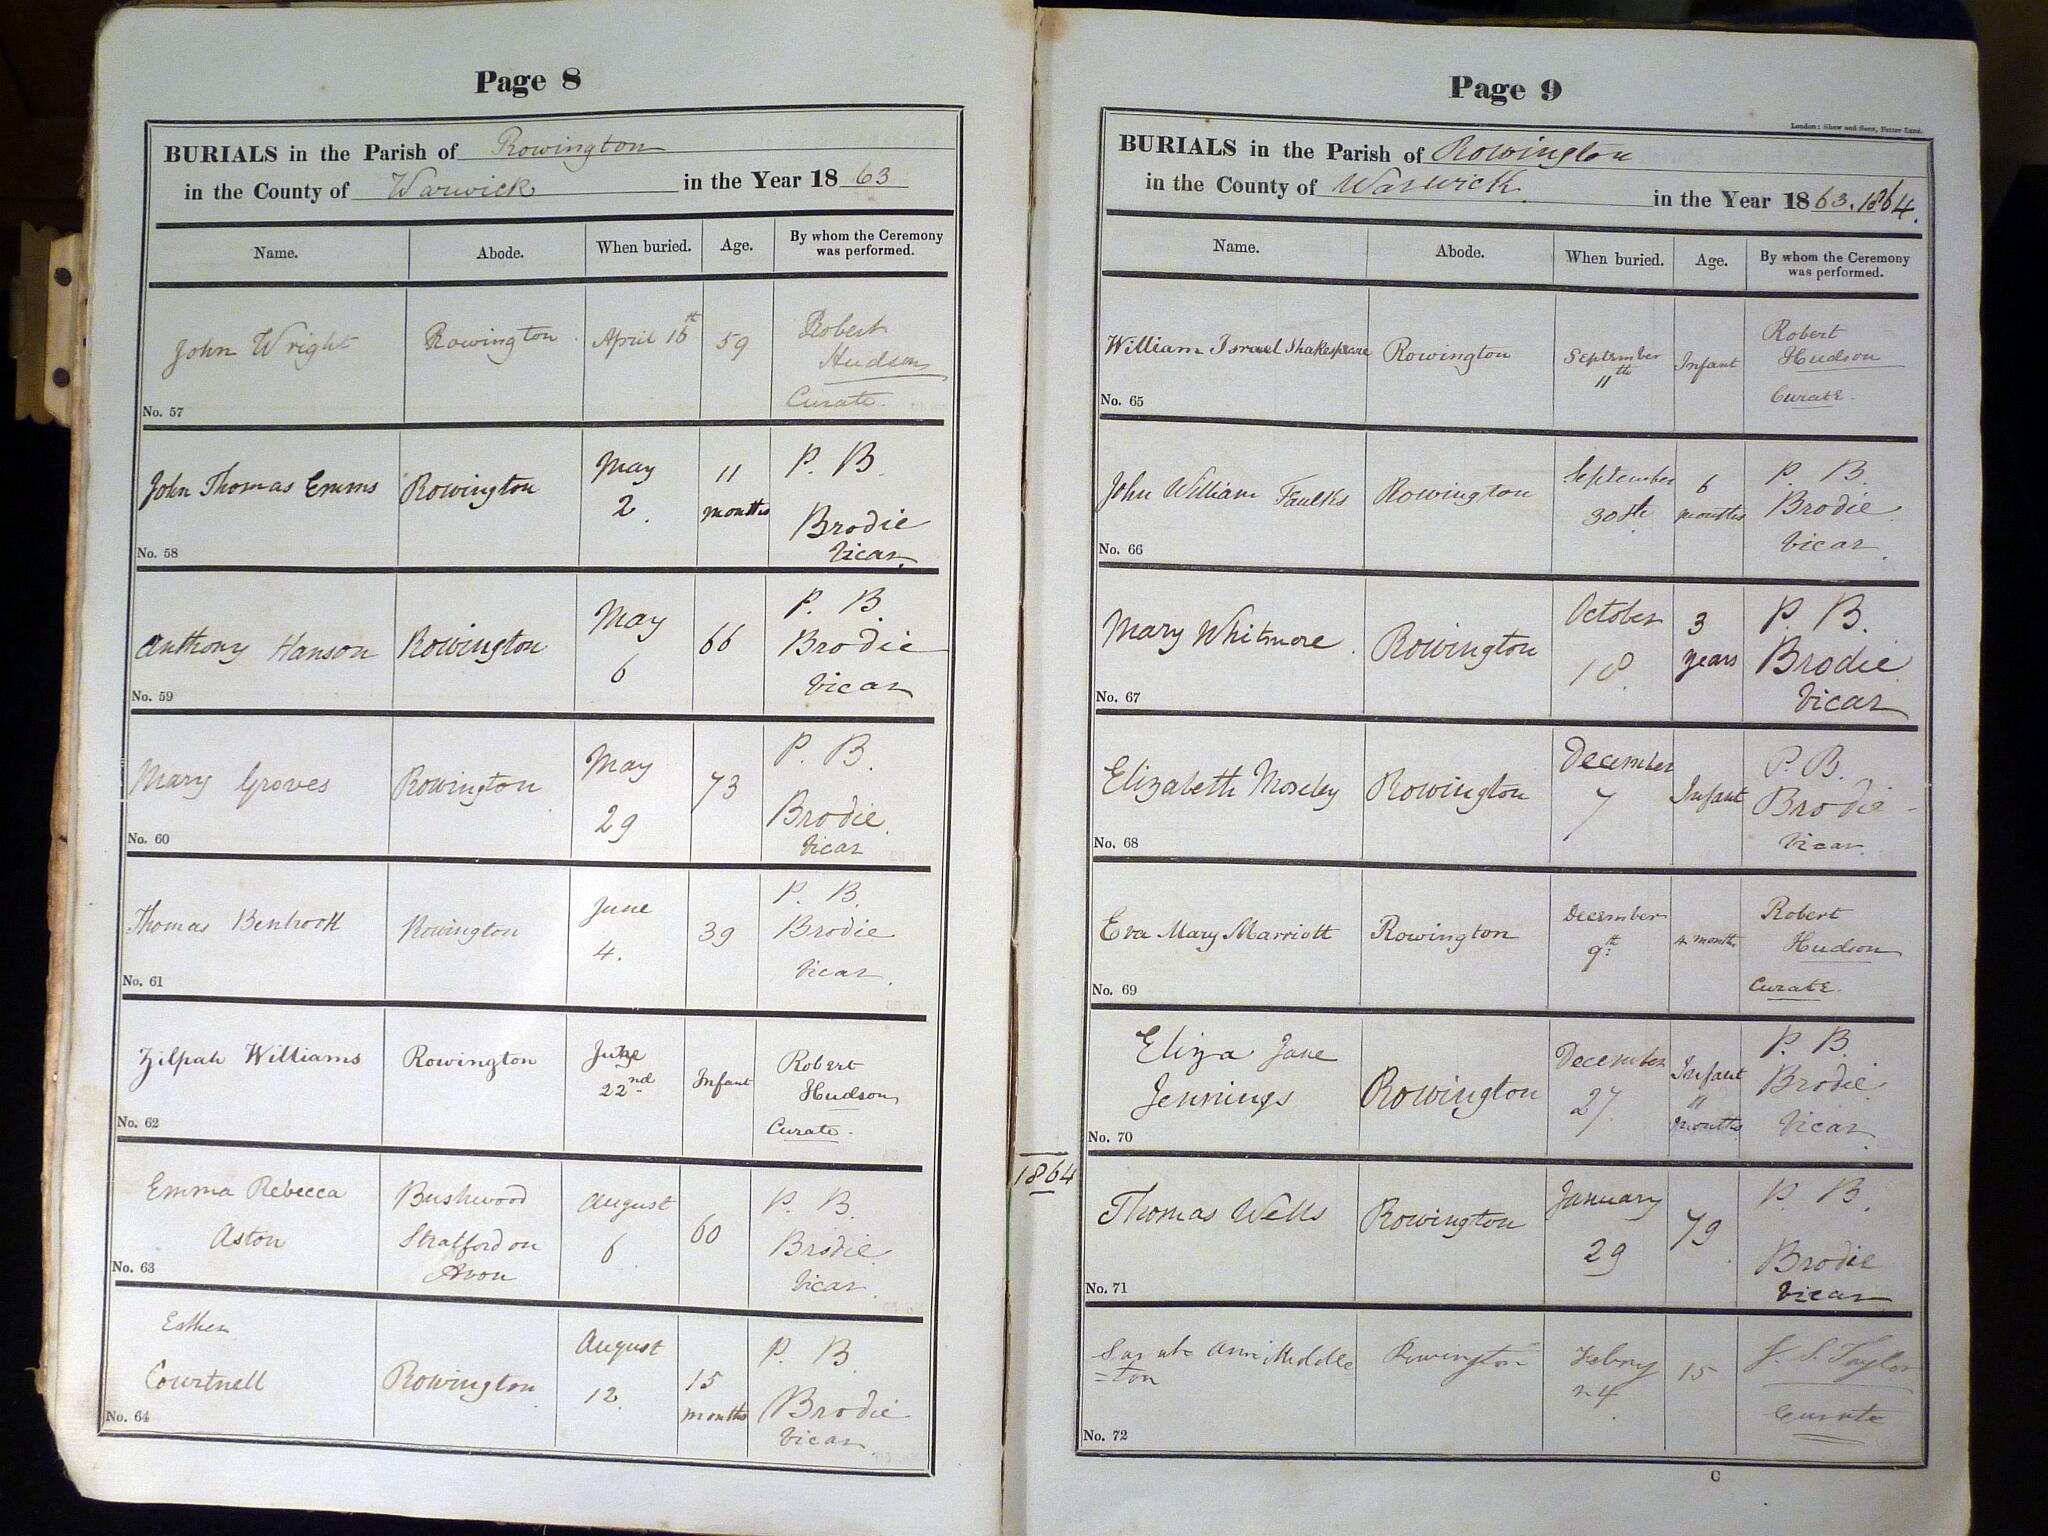 Page 8
BURIALS in the Parish of Rowington
in the County of Warwick in the Year 1863
Name. Abode. When buried. Age. By whom the Ceremony
was performed.
John Wright Rowington April 16th 59 Robert
Hudson
Curate.
No. 57
John Thomas Emms Rowington May 11 P. B.
2. months Brodie
Vicar.
No. 58
Anthony Hanson Rowington May 66 P. B.
6 Brodie
Vicar
No. 59
Mary Groves Rowington May 73 P. B.
29 Brodie.
Vicar
No. 60
Thomas Rowington June 39 P. B.
4. Brodie
Vicar.
No. 61
Zilpah Williams Rowington Robert
22nd Infant Hudson
Curate.
No. 62
Emma Rebecca Bushwood August 60 P. B.
Aston Stratford on 6 Brodie
Avon Vicar.
No. 63
Esther August P. B.
Courtnell Rowington 12. 15 Brodie
months Vicar.
No. 64
Page 9
London: Shaw and Sons, Fetter Lane.
BURIALS in the Parish of Rowington
in the County of Warwick. in the Year 1863. 1864.
Name. Abode. When buried. Age. By whom the Ceremony
was performed.
William Israel Shakespeare Rowington September Infant Robert
11th Hudson
Curate.
No. 65
John William Faulks Rowington September 6 P. B.
30th months Brodie.
Vicar.
No. 66
Mary Whitmore Rowington October 3 P. B.
18. years Brodie
Vicar
No. 67
Elizabeth Moseley Rowington December Infant P. B.
7 Brodie
Vicar.
No. 68
Eva Mary Marriott Rowington December 4 months Robert
9th Hudson
Curate.
No. 69
Eliza Jane December Infant P. B.
Jennings Rowington 27. 11 Brodie.
months Vicar.
No. 70
1864
Thomas Wells Rowington January 79 P. B.
29 Brodie
Vicar
No. 71
Sarah Ann Middle Rowington Febry 15 J. S. Taylor
=ton 24 Curate
No. 72
C